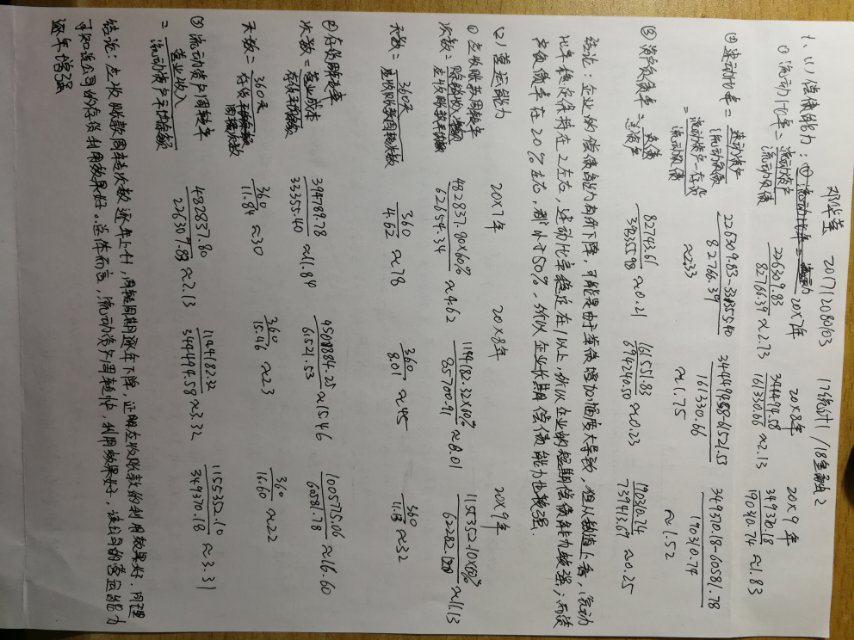 邓华莹 201712080103 17统计1/18金融2
1、(1) 偿债能力: 20×7年 20×8年 20×9年
①流动比率=流动资产/流动负债 226309.83/82766.39≈2.73 344494.58/161330.66≈2.13 349370.18/190310.74≈1.83
②速动比率=速动资产/流动负债
=流动资产-存货/流动负债 226309.83-33355.40/82766.39≈2.33 344494.58-61521.53/161330.66≈1.75 349370.18-60581.78/190310.74≈1.52
③资产负债率=总负债/总资产 82743.61/393355.98≈0.21 161551.83/694240.50≈0.23 190310.74/739413.69≈0.25
结论:企业的偿债能力有所下降,可能是由于负债增加幅度大导致,但从数值上看,流动
比率稳定保持在2左右,速动比率稳定在1以上,所以企业的短期偿债能力较强;而资
产负债率在20%左右,都小于50%,所以企业长期偿债能力也较强.
(2)营运能力 20×7年 20×8年 20×9年
①应收账款周转率
次数= 482837.90×60%/62654.34≈4.62 1144182.32×60%/85700.91≈8.01 1155352.10×60%≈11.13
天数=360天/应收账款周转次数 360/4.62≈78 360/8.01≈45 360/11.13≈32
②存货周转率
次数=营业成本/存货平均余额 394789.78/33355.40≈11.84 ≈15.46 1005715.06/60581.78≈16.60
天数=360天/存货周转次数 360/11.84≈30 360/15.46≈23 360/16.60≈22
③流动资产周转率
=营业收入/流动资产平均余额 482837.90/226309.83≈2.13 344494.58≈3.32 1155352.10/349370.18≈3.31
结论:应收账款周转次数逐年上升,周转周期逐年下降,证明应收账款的利用效果好.同理
可知该公司的存货利用效果好。总体而言,流动资产周转快,利用效果好,该公司的营运能力
逐年增强